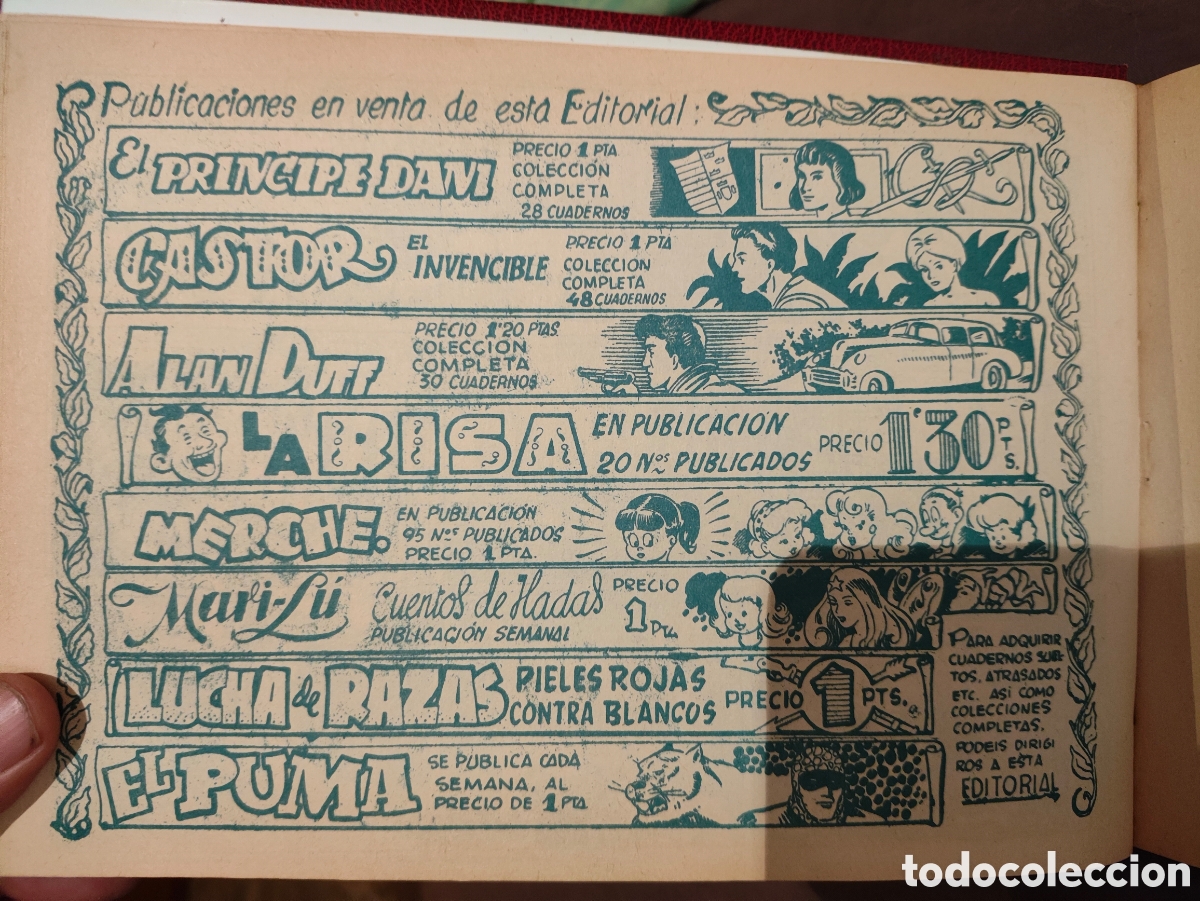 Publicaciones en venta de esta Editorial:
El PRINCIPE DANI
PRECIO 1 PTA
COLECCIÓN
COMPLETA
28 CUADERNOS
CASTOR
EL
INVENCIBLE
PRECIO 1 PTA
COLECCIÓN
COMPLETA
48 CUADERNOS
ALAN DUFF
PRECIO 1'20 PTAS.
COLECCIÓN
COMPLETA
30 CUADERNOS
LA RISA
EN PUBLICACIÓN
20 Nos PUBLICADOS
PRECIO 1'30 PTS.
MERCHE.
EN PUBLICACIÓN
95 Nos PUBLICADOS
PRECIO 1 PTA.
Mari-Lú
Cuentos de Hadas
PUBLICACIÓN SEMANAL
PRECIO
1 Pta.
LUCHA de RAZAS
PIELES ROJAS
CONTRA BLANCOS
PRECIO 1 PTS.
EL PUMA
SE PUBLICA CADA
SEMANA, AL
PRECIO DE 1 PTA
PARA ADQUIRIR
CUADERNOS SUEL-
TOS, ATRASADOS
ETC. ASÍ COMO
COLECCIONES
COMPLETAS.
PODEIS DIRIGI
ROS A ESTA
EDITORIAL
todocoleccion